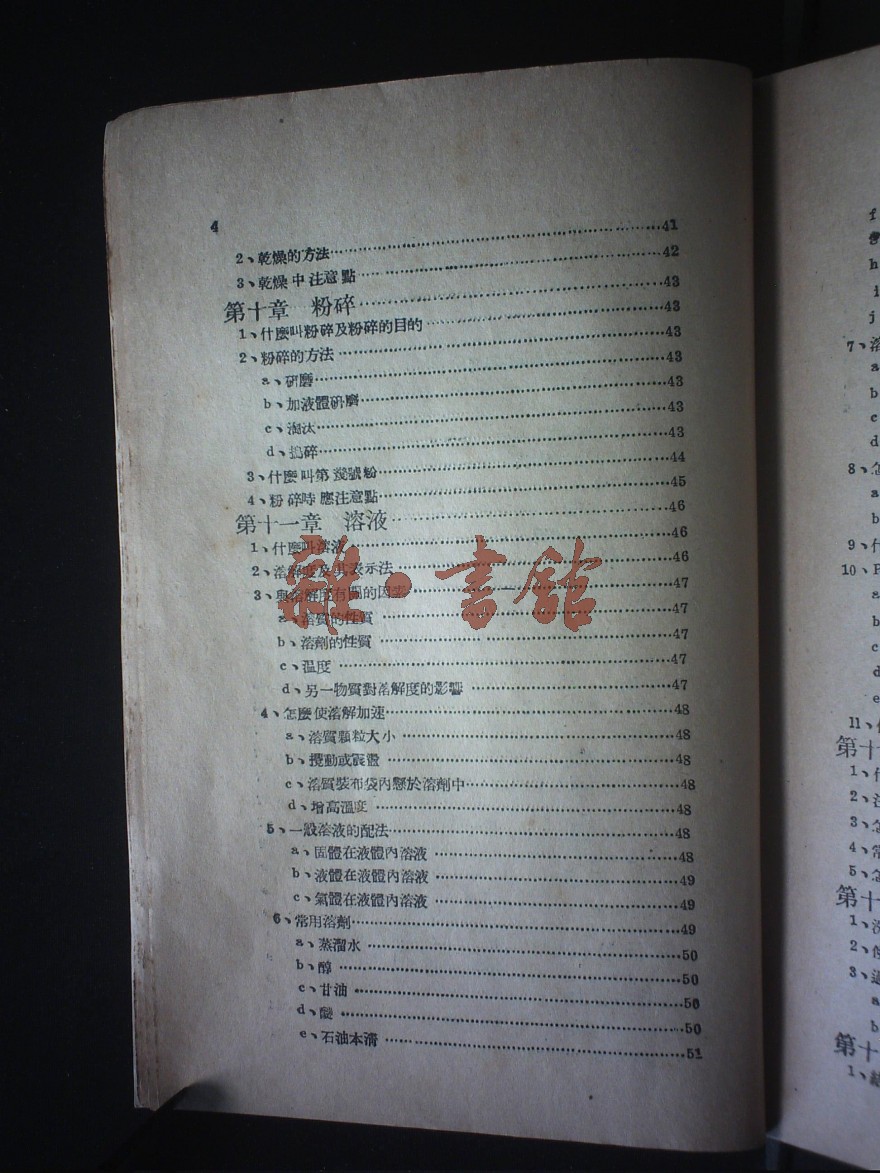 4
2、乾燥的方法……41
3、乾燥中注意點……42
第十章 粉碎……43
1、什麼叫粉碎及粉碎的目的……43
2、粉碎的方法……43
a、研磨……43
b、加液體研磨……43
c、淘汰……43
d、搗碎……43
3、什麼叫第幾號粉……44
4、粉碎時應注意點……45
第十一章 溶液……46
1、什麼叫溶液……46
2、溶解度及其表示法……46
3、與溶解度有關的因素……47
a、溶質的性質……47
b、溶劑的性質……47
c、溫度……47
d、另一物質對溶解度的影響……47
4、怎麼使溶解加速……48
a、溶質顆粒大小……48
b、攪動或震盪……48
c、溶質裝布袋內懸於溶劑中……48
d、增高溫度……48
5、一般溶液的配法……48
a、固體在液體內溶液……48
b、液體在液體內溶液……49
c、氣體在液體內溶液……49
6、常用溶劑……49
a、蒸溜水……50
b、醇……50
c、甘油……50
d、醚……50
e、石油本清……51
雜·書館
f
h
i
j
7、溶
a
b
c
d
8、怎
a
b
9、什
10、P
a
b
c
d
e
11、
第十
1、什
2、注
3、怎
4、常
5、怎
第十
1、洗
2、使
3、過
a
b
第十
1、結